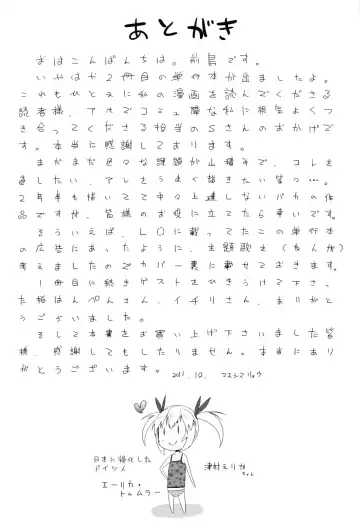 あとがき
おはこんばんちは。前島です。
いやはや2冊目の単行本が出ましたよ。
これもひとえに私の漫画を読んでくださる
読者様、アルでコミュ障な私に根気よくつ
き合ってくださる担当のSさんのおかげで
す。本当に感謝しております。
まだまだ色々な課題が山積みで、コレを
直したい、アレをうまく描きたい等々…。
2年半も描いてて中々上達しないバカの作
品ですが、皆様のお役に立てたら幸いです。
そういえば、LOに載ってたこの単行本
の広告にあったように、主題歌を(なんか)
考えましたのでカバー裏に載せておきます。
1冊目に続きゲストをひきうけて下さっ
た桜はんぺんさん、イチリさん、ありがと
うございました。
そして本書をお買い上げ下さいました皆
様、感謝してもしたりません。本当にあり
がとうございます。
2011.10. マエシマリョウ
日本に帰化した
ドイツ人
エーリカ・
トルムラー
津村えりか
ちゃん